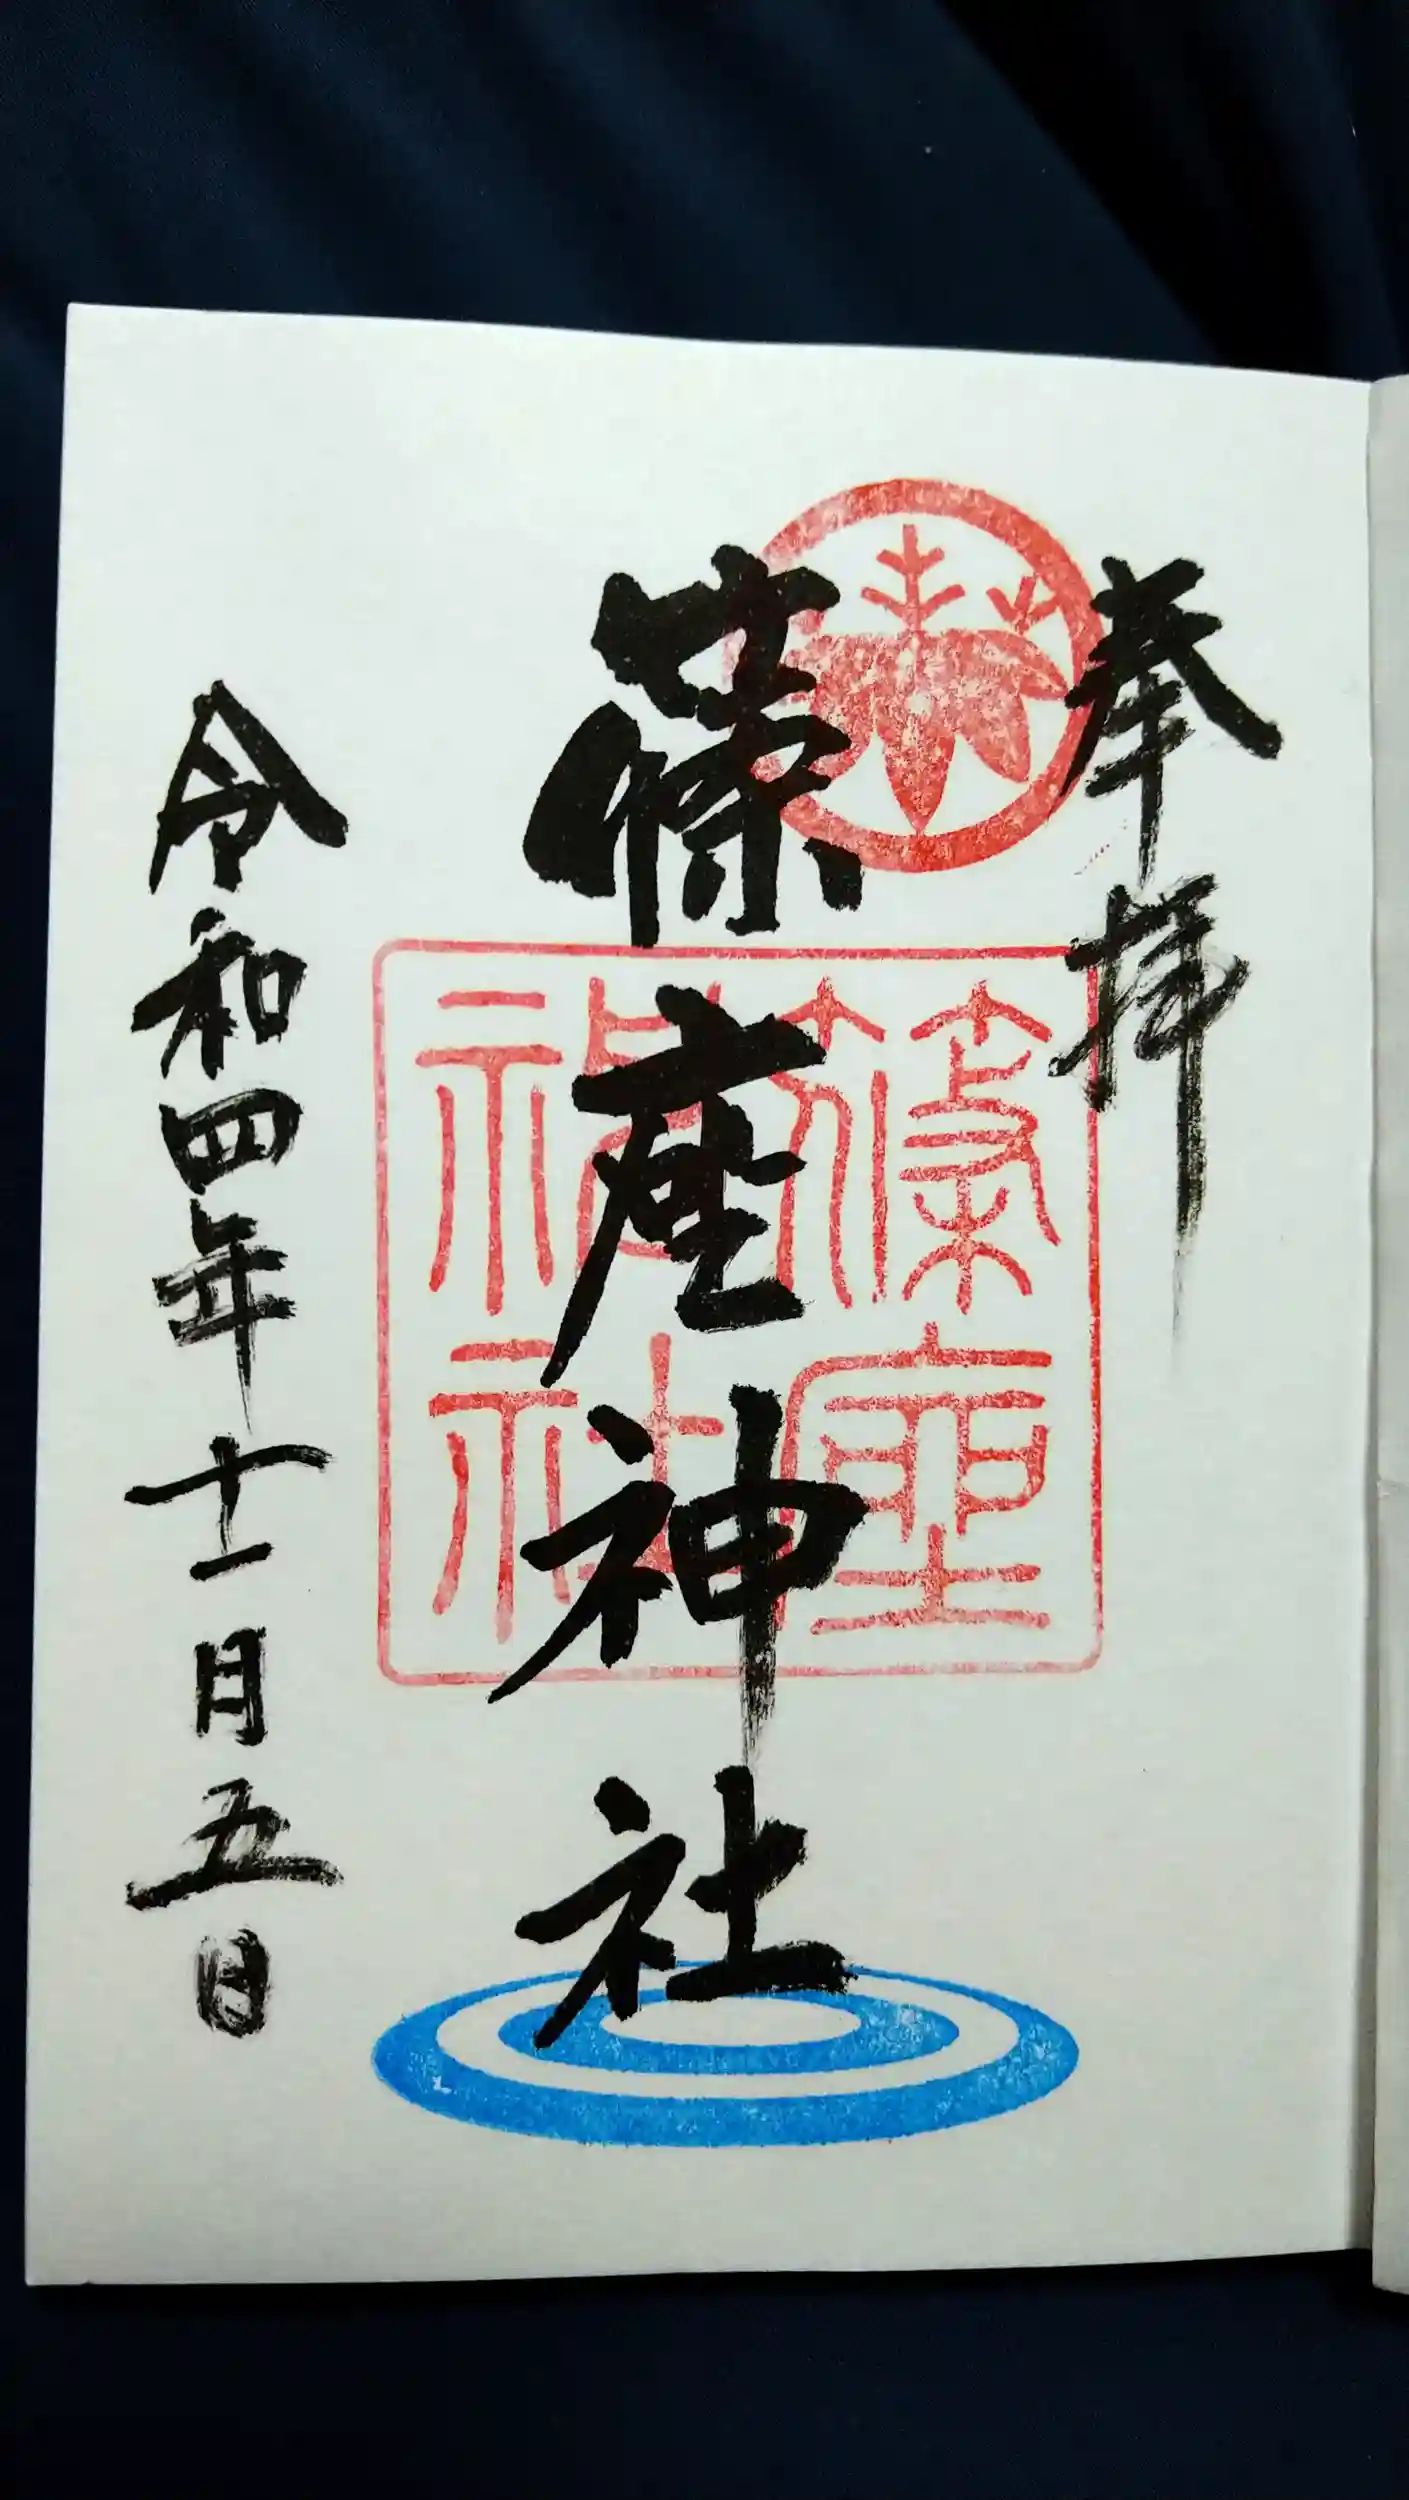 奉拝
篠座神社
篠座神社
令和四年十一月五日